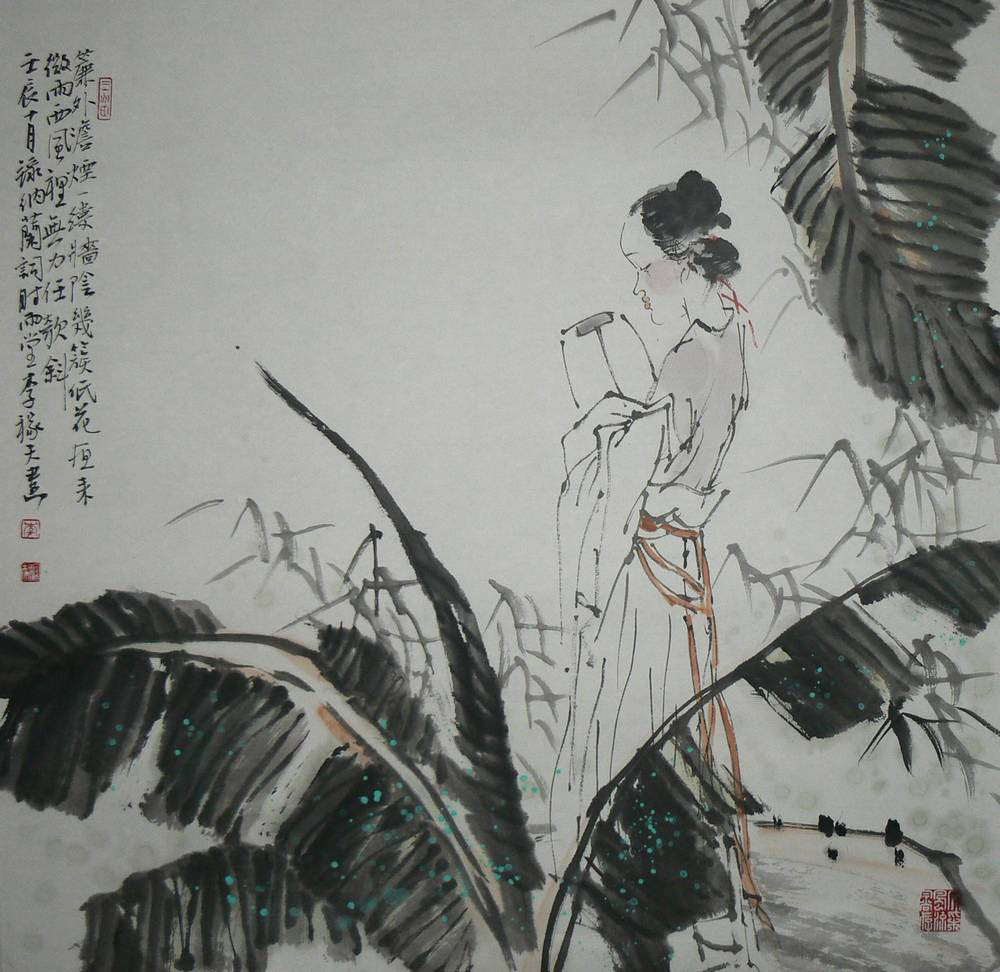 簾外澹煙一縷牆陰幾簇低花夜來
微雨西風裡無力任欹斜
壬辰十月録納蘭詞时雨堂李夫畫
李